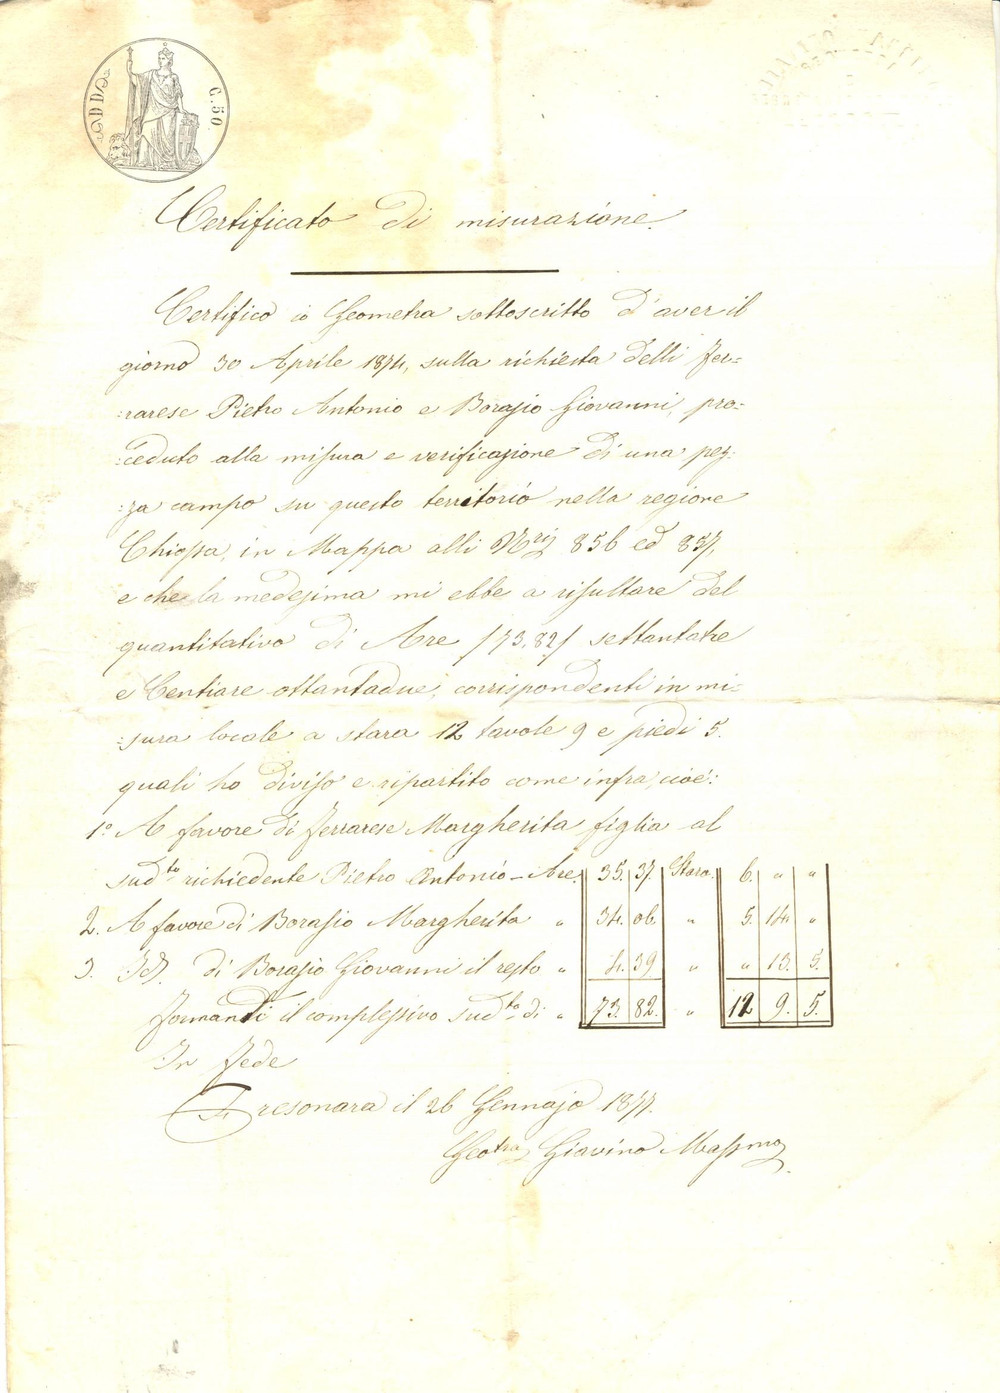 C. 50
Certificato di misurazione.
Certifico io Geometra sottoscritto d'aver il
giorno 30 Aprile 1874, sulla richiesta delli Fer=
=rarese Pietro Antonio e Borasio Giovanni, pro=
=ceduto alla misura e verificazione di una pez=
=za campo su questo territorio nella regione
Chiossa, in Mappa alli Nri 856 ed 857,
e che la medesima mi ebbe a risultare del
quantitativo di Are /73,82/ settantatre
e Centiare ottantadue, corrispondenti in mi=
=sura locale a stara 12 tavole 9 e piedi 5.
quali ho diviso e ripartito come infra, cioè:
1º A favore di Ferrarese Margherita figlia al
sudto richiedente Pietro Antonio - Are 35. 37. Stara. 6. " "
2. A favore di Borasio Margherita " 34. 06. " 5. 14. "
3. Id. di Borasio Giovanni il resto " 4. 39 " " 13. 5.
formanti il complessivo sudto di " 73. 82. " 12 9. 5.
In fede
Fresonara il 26 Gennajo 1877.
Geotra Giavino Massmo